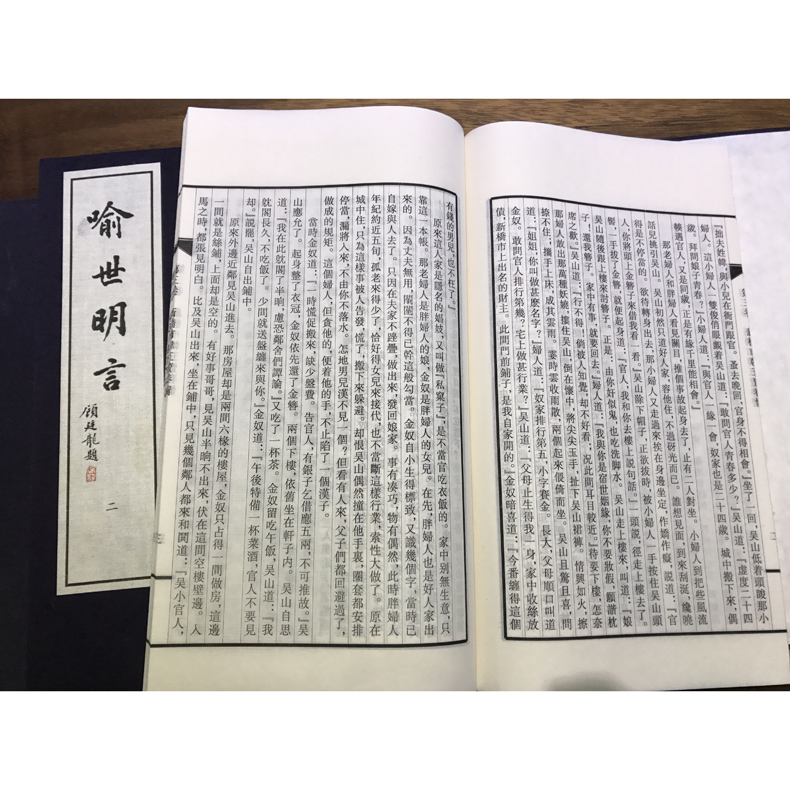 喻世明言
顧廷龍題
二
『拙夫姓韓,與小兒在衙門跟官。蚤去晚回,官身不得相會。』坐了一回,吳山低着頭睃那小
婦人。這小婦人一雙俊俏眼覷着吳山道:『敢問官人青春多少?』吳山道:『虛度二十四
歲,拜問娘子青春。』小婦人道:『與官人一緣一會,奴家也是二十四歲。城中搬下來,偶
輳遇官人,又是同歲,正是有緣千里能相會。』
那老婦人和胖婦人看見關目,推個事故起身去了,止有二人對坐。小婦人到把些風流
話兒挑引吳山。吳山初然只道好人家,容他住,不過砑光而已。誰想見面,到來刮涎,纔曉
得是不停當的。欲待轉身出去,那小婦人又走過來挨在身邊坐定,作嬌作癡,說道:『官
人,你將頭上金簪子來借我看一看。』吳山除下帽子,正欲拔時,被小婦人一手按住吳山頭
髻,一手拔了金簪,就便起身道:『官人,我和你去樓上說句話。』一頭說,徑走上樓去了。
吳山隨後跟上樓來討簪子。正是:由你好似鬼,也吃洗脚水。吳山走上樓來,叫道:『娘
子!還我簪子。家中有事,就要回去。』婦人道:『我與你是宿世姻緣,你不要妝假,願諧枕
席之歡。』吳山道:『行不得!倘被人知覺,却不好看,況此間耳目較近。』待要下樓,怎奈
那婦人放出那萬種妖嬈,摟住吳山,倒在懷中,將尖尖玉手,扯下吳山裙褲。情興如火,擦
捺不住,攜手上床,成其雲雨。霎時雲收雨散,兩個起來偎倚而坐。吳山且驚且喜,問
道:『姐姐,你叫做甚麼名字?』婦人道:『奴家排行第五,小字賽金。長大,父母順口叫道
金奴。敢問官人排行第幾?宅上做甚行業?』吳山道:『父母止生得我一身,家中收絲放
債,新橋市上出名的財主。此間門前鋪子,是我自家開的。』金奴暗喜道:『今番纏得這個
有錢的男兒,也不枉了。』
原來這人家是隱名的娼妓,又叫做『私窠子』,是不當官吃衣飯的。家中別無生意,只
靠這一本帳。那老婦人是胖婦人的娘,金奴是胖婦人的女兒。在先,胖婦人也是好人家出
來的。因為丈夫無用,𨶙𨶜不得已幹這般勾當。金奴自小生得標致,又識幾個字,當時已
自嫁與人去了。只因在夫家不坐疊,做出來,發回娘家。事有湊巧,物有偶然,此時胖婦人
年紀約近五旬,孤老來得少了,恰好得女兒來接代,也不當斷這樣行業,索性大做了。原在
城中住,只為這樣事被人告發,慌了,搬下來躲避。却恨吳山偶然撞在他手裏,圈套都安排
停當,漏將入來,不由你不落水。怎地男兒漢不見一個?但看有人來,父子們都回避過了,
做成的規矩。這個婦人,但貪他的,便着他的手,不止陷了一個漢子。
當時金奴道:『一時慌促搬來,缺少盤費。告官人,有銀子乞借應五兩,不可推故。』吳
山應允了。起身整了衣冠,金奴依先還了金簪。兩個下樓,依舊坐在軒子內。吳山自思
道:『我在此躭閣了半晌,慮恐鄰舍們譚論。』又吃了一杯茶。金奴留吃午飯,吳山道:『我
躭閣長久,不吃飯了。少間就送盤纏來與你。』金奴道:『午後特備一杯菜酒,官人不要見
却。』說罷,吳山自出鋪中。
原來外邊近鄰見吳山進去。那房屋却是兩間六椽的樓屋,金奴只占得一間做房,這邊
一間就是絲鋪,上面却是空的。有好事哥哥,見吳山半晌不出來,伏在這間空樓壁邊。入
馬之時,都張見明白。比及吳山出來,坐在鋪中,只見幾個鄰人都來和閧道:『吳小官人,